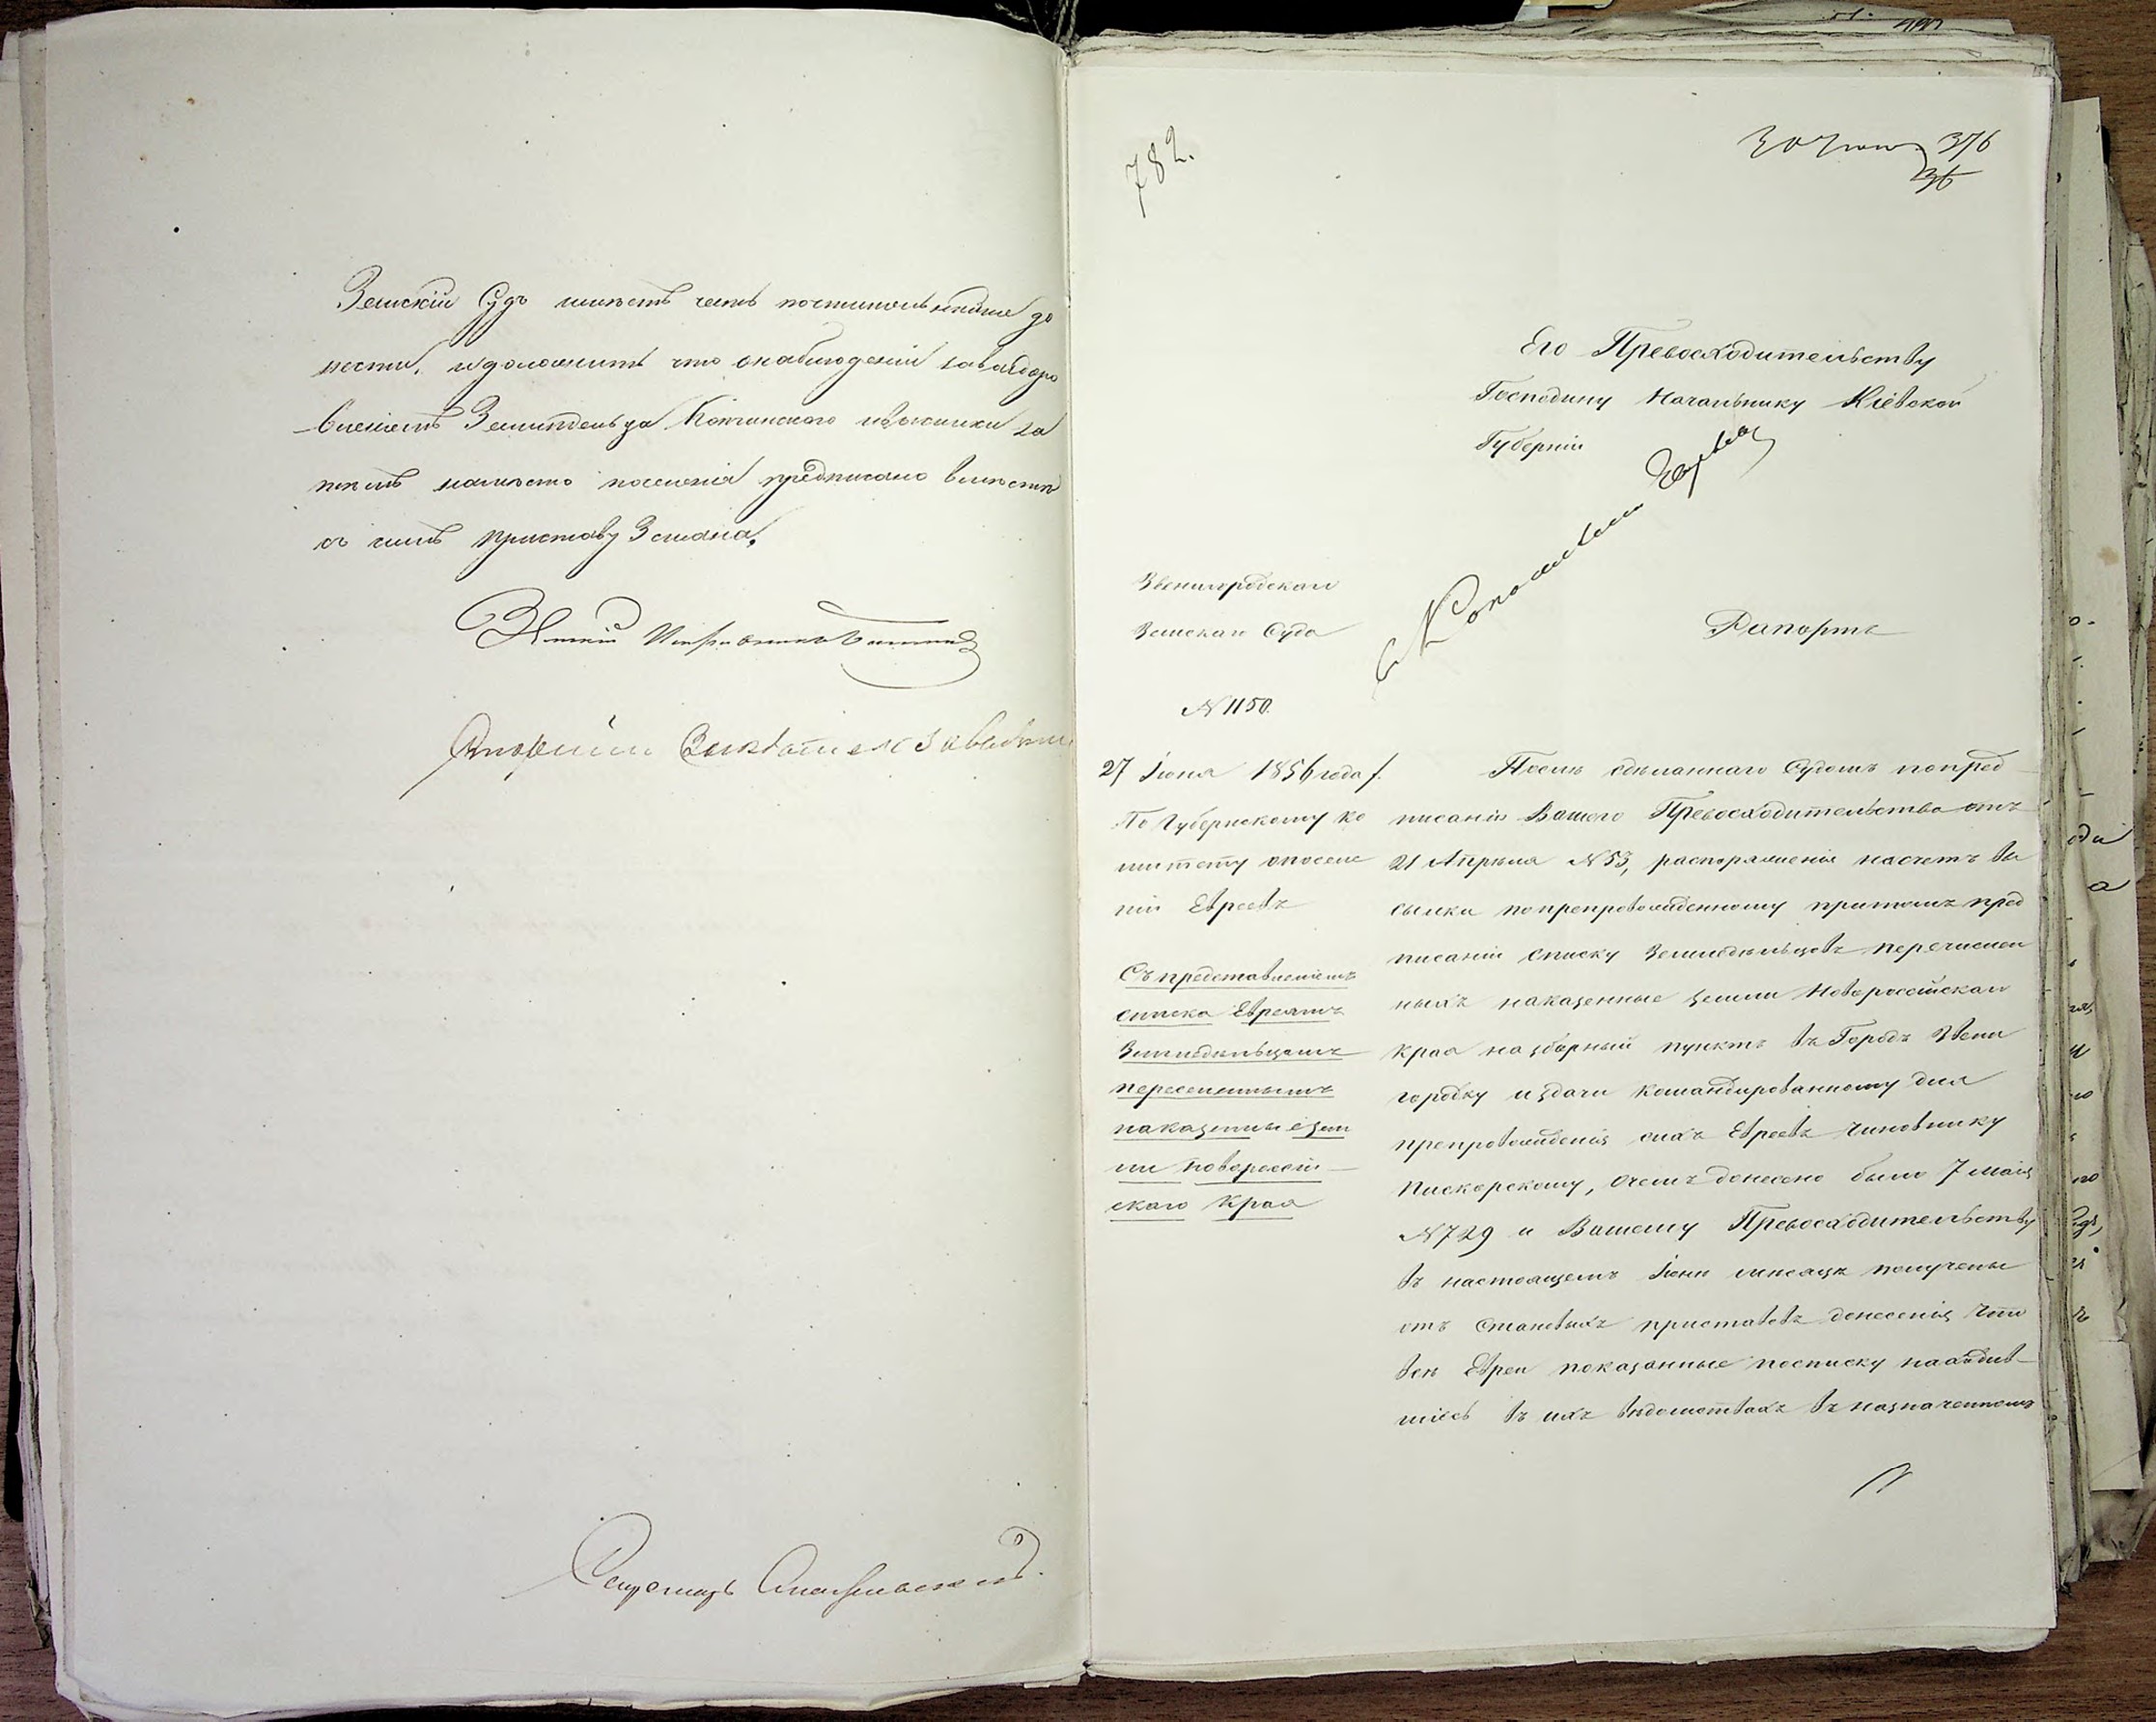 Земскій Судъ имѣетъ честь почтительнѣйше до
нести, и доложить что о наблюденіи за выздоро
вленіемъ Земледѣльца и высылки за
тѣмъ на мѣсто поселенія предписано вмѣстѣ
съ симъ Приставу 3 стана.
Земскій Исправникъ
Секретарь
782.
30 Іюня 376
Его Превосходительству
Господину Начальнику Кіевской
Губерніи
Звенигородскаго
Земскаго Суда
Рапортъ
N 1150.
27 Іюня 1856 года
По Губернскому ко
митету о поселе
ніи Евреевъ
Съ представленіемъ
списка Евреямъ
Земледѣльцамъ
переселеннымъ
на казенные зем
ли Новороссій-
скаго Края
Послѣ сдѣланнаго Судомъ по пред
писанію Вашего Превосходительства отъ
21 Апрѣля N 53, распоряженія на счетъ вы
сылки по препровожденному при томъ пред
писаніи списку Земледѣльцевъ перечислен
ныхъ на казенные земли Новороссійскаго
края на зборный пунктъ въ Городъ Звени
городку и здачи командированному для
препровожденія сихъ Евреевъ чиновнику
Пискорскому, о чемъ донесено было 7 маія
N 729 и Вашему Превосходительству
въ настоящемъ Іюнѣ мѣсяцѣ получены
отъ Становыхъ приставовъ донесенія что
всѣ Евреи показанные по списку находив-
шіесь въ ихъ вѣдомствахъ въ назначенномъ